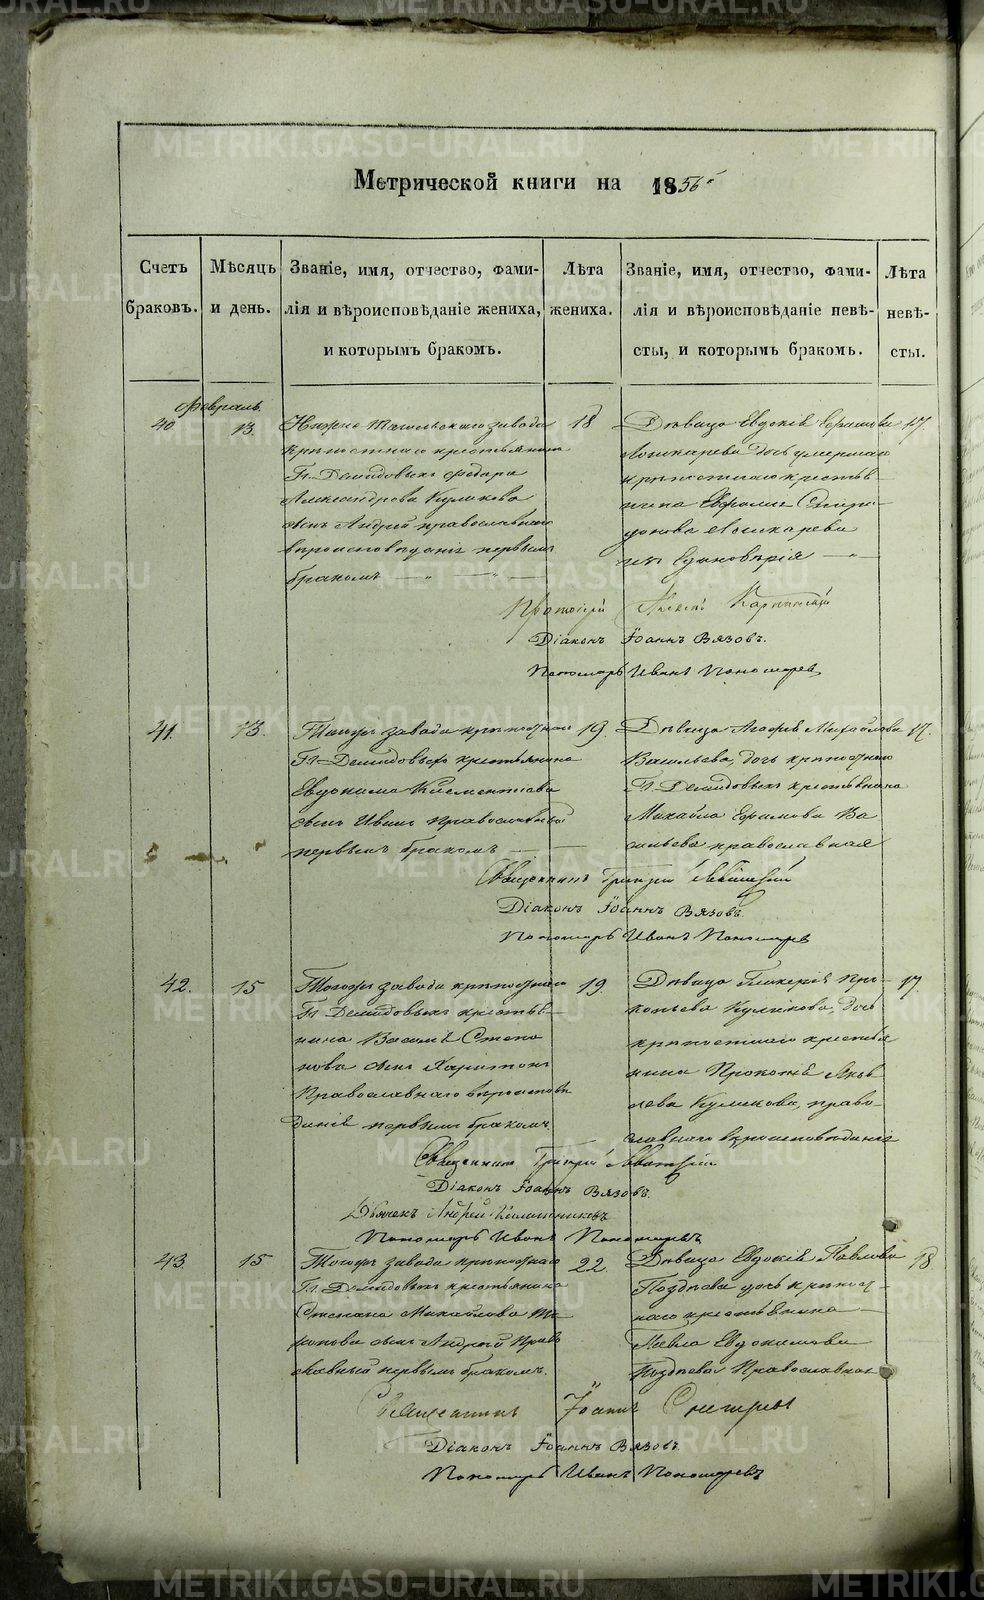 METRIKI.GASO-URAL.RU
Метрической книги на 1856й
Счетъ браковъ.
Мѣсяцъ и день.
Званіе, имя, отчество, фами-
лія и вѣроисповѣданіе жениха,
и которымъ бракомъ.
Лѣта
жениха.
Званіе, имя, отчество, фами-
лія и вѣроисповѣданіе невѣ-
сты, и которымъ бракомъ.
Лѣта
невѣ-
сты.
Февраль.
40
13.
Нижне Тагильскаго завода
крѣпостнаго крестьянина
Гг. Демидовыхъ Федора
Александрова Куликова
сынъ Андрей православнаго
вѣроисповѣданія первымъ
бракомъ
18
Дѣвица Евдокія Ефремова
дочь умершаго
крѣпостнаго крестья
нина Ефрема Спири-
донова
Единовѣрія
17.
Протоіерей Карпинскій
Діаконъ Іоаннъ Вязовъ.
Пономарь Иванъ Пономаревъ
41.
13.
Тогожъ завода крѣпостнаго
Гг. Демидовыхъ крестьянина
Евдокима Клементьева
сынъ Иванъ Православный
первымъ бракомъ
19.
Дѣвица Агафья Михайлова
Васильева, дочь крѣпостнаго
Гг. Демидовыхъ крестьянина
Михайла Ефимова Ва
сильева православная
17.
Священникъ Григорій
Діаконъ Іоаннъ Вязовъ.
Пономарь Иванъ Пономаревъ
42.
15
Тогожъ завода крѣпостнаго
Гг. Демидовыхъ крестья-
нина Василья Степа
нова сынъ Харитонъ
Православнаго вѣроисповѣ
данія первымъ бракомъ.
19.
Дѣвица Гликерія Про-
копьева Куликова, дочь
крѣпостнаго крестья
нина Прокопья Яков
лева Куликова, право-
славнаго вѣроисповѣданія
17.
Священникъ Григорій
Діаконъ Іоаннъ Вязовъ.
Дьячекъ Андрей
Пономарь Иванъ Пономаревъ
43
15
Тогожъ завода крѣпостнаго
Гг. Демидовыхъ крестьянина
Степана Михайлова
сынъ Андрей Право
славный первымъ бракомъ.
22.
Дѣвица Евдокія Павлова
Поздѣева дочь крѣпост-
наго крестьянина
Павла Евдокимова
Поздѣева Православная
18
Священникъ Іоаннъ
Діаконъ Іоаннъ Вязовъ.
Пономарь Иванъ Пономаревъ